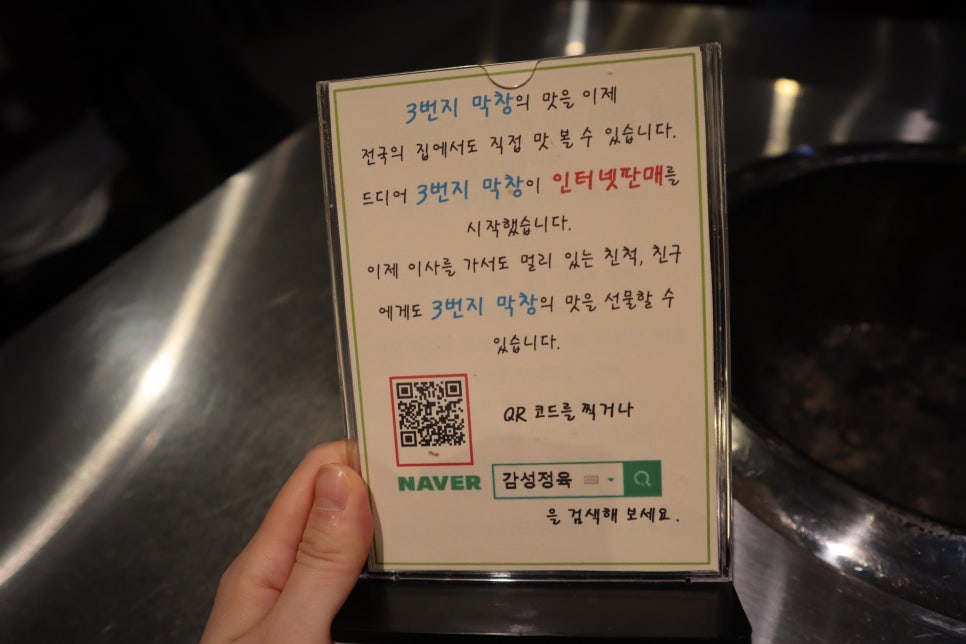 3번지 막창의 맛을 이제
전국의 집에서도 직접 맛 볼 수 있습니다.
드디어 3번지 막창이 인터넷판매를
시작했습니다.
이제 이사를 가서도 멀리 있는 친척, 친구
에게도 3번지 막창의 맛을 선물할 수
있습니다.
QR 코드를 찍거나
NAVER 감성정육
을 검색해 보세요.